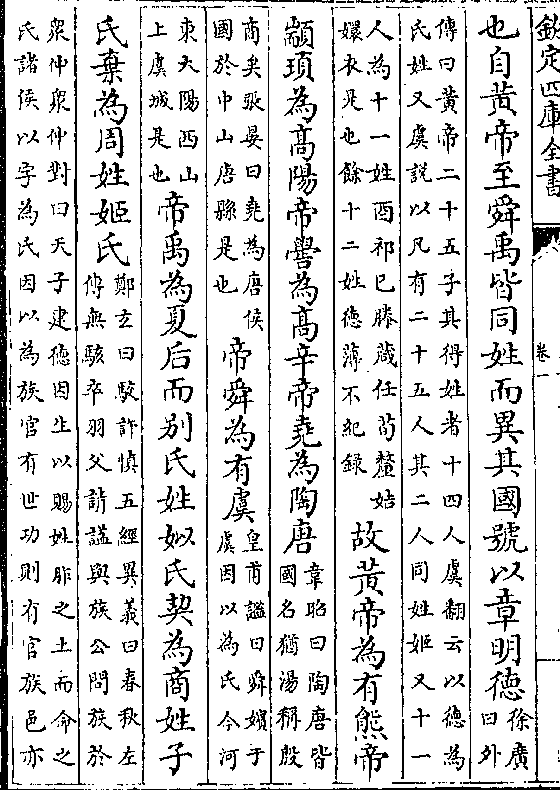 欽定四庫全書
卷一
也自黄帝至舜禹皆同姓而異其國號以章明德
徐廣
曰外
傳曰黄帝二十五子其得姓者十四人虞翻云以德為
氏姓又虞説以凡有二十五人其二人同姓姬又十一
人為十一姓酉祁巳滕葴任荀釐姞
嬛衣是也餘十二姓德薄不紀録
故黄帝為有熊帝
顓頊為高陽帝嚳為高辛帝堯為陶唐
韋昭曰陶唐皆
國名猶湯稱殷
商矣張晏曰堯為唐侯
國於中山唐縣是也
帝舜為有虞
皇甫謐曰舜嬪于
虞因以為氏今河
東大陽西山
上虞城是也
帝禹為夏后而别氏姓姒氏契為商姓子
氏棄為周姓姬氏
鄭玄曰駮許慎五經異義曰春秋左
傳無駭卒羽父請謚與族公問族於
衆仲衆仲對曰天子建德因生以賜姓胙之土而命之
氏諸侯以字為氏因以為族官有世功則有官族邑亦